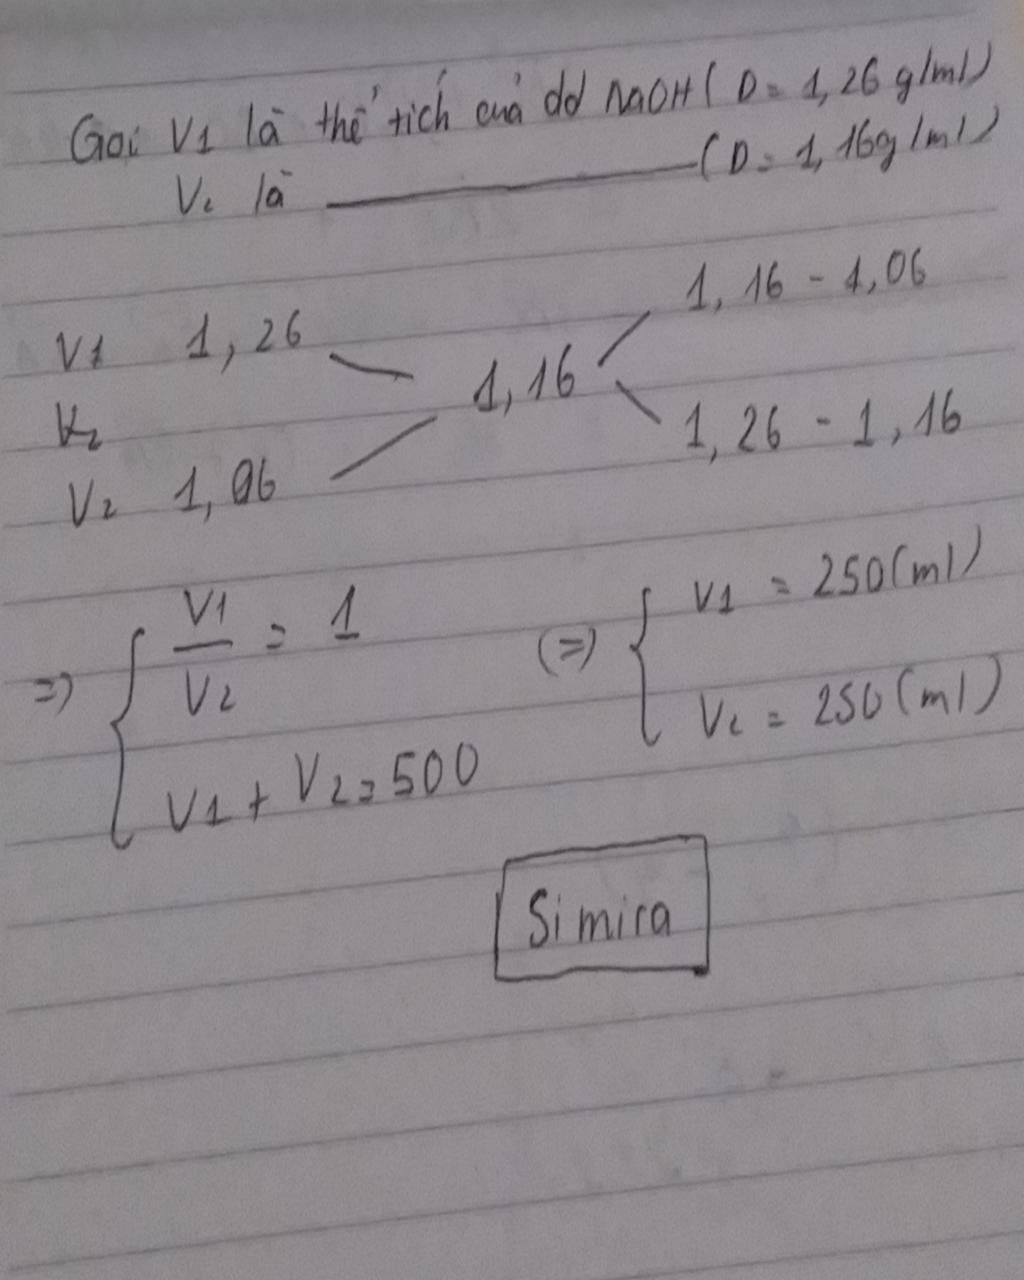 Gọi V1 là thể tích của dd NaOH ( D = 1,26 g/ml)
V2 là ———— ( D = 1,16g/ml)
V1 1,26 1,16 1,16 - 1,06
V2
V2 1,06 1,26 - 1,16
=> { V1/V2 = 1 (=) { V1 = 250(ml)
V1 + V2 = 500 V2 = 250(ml)
Simira